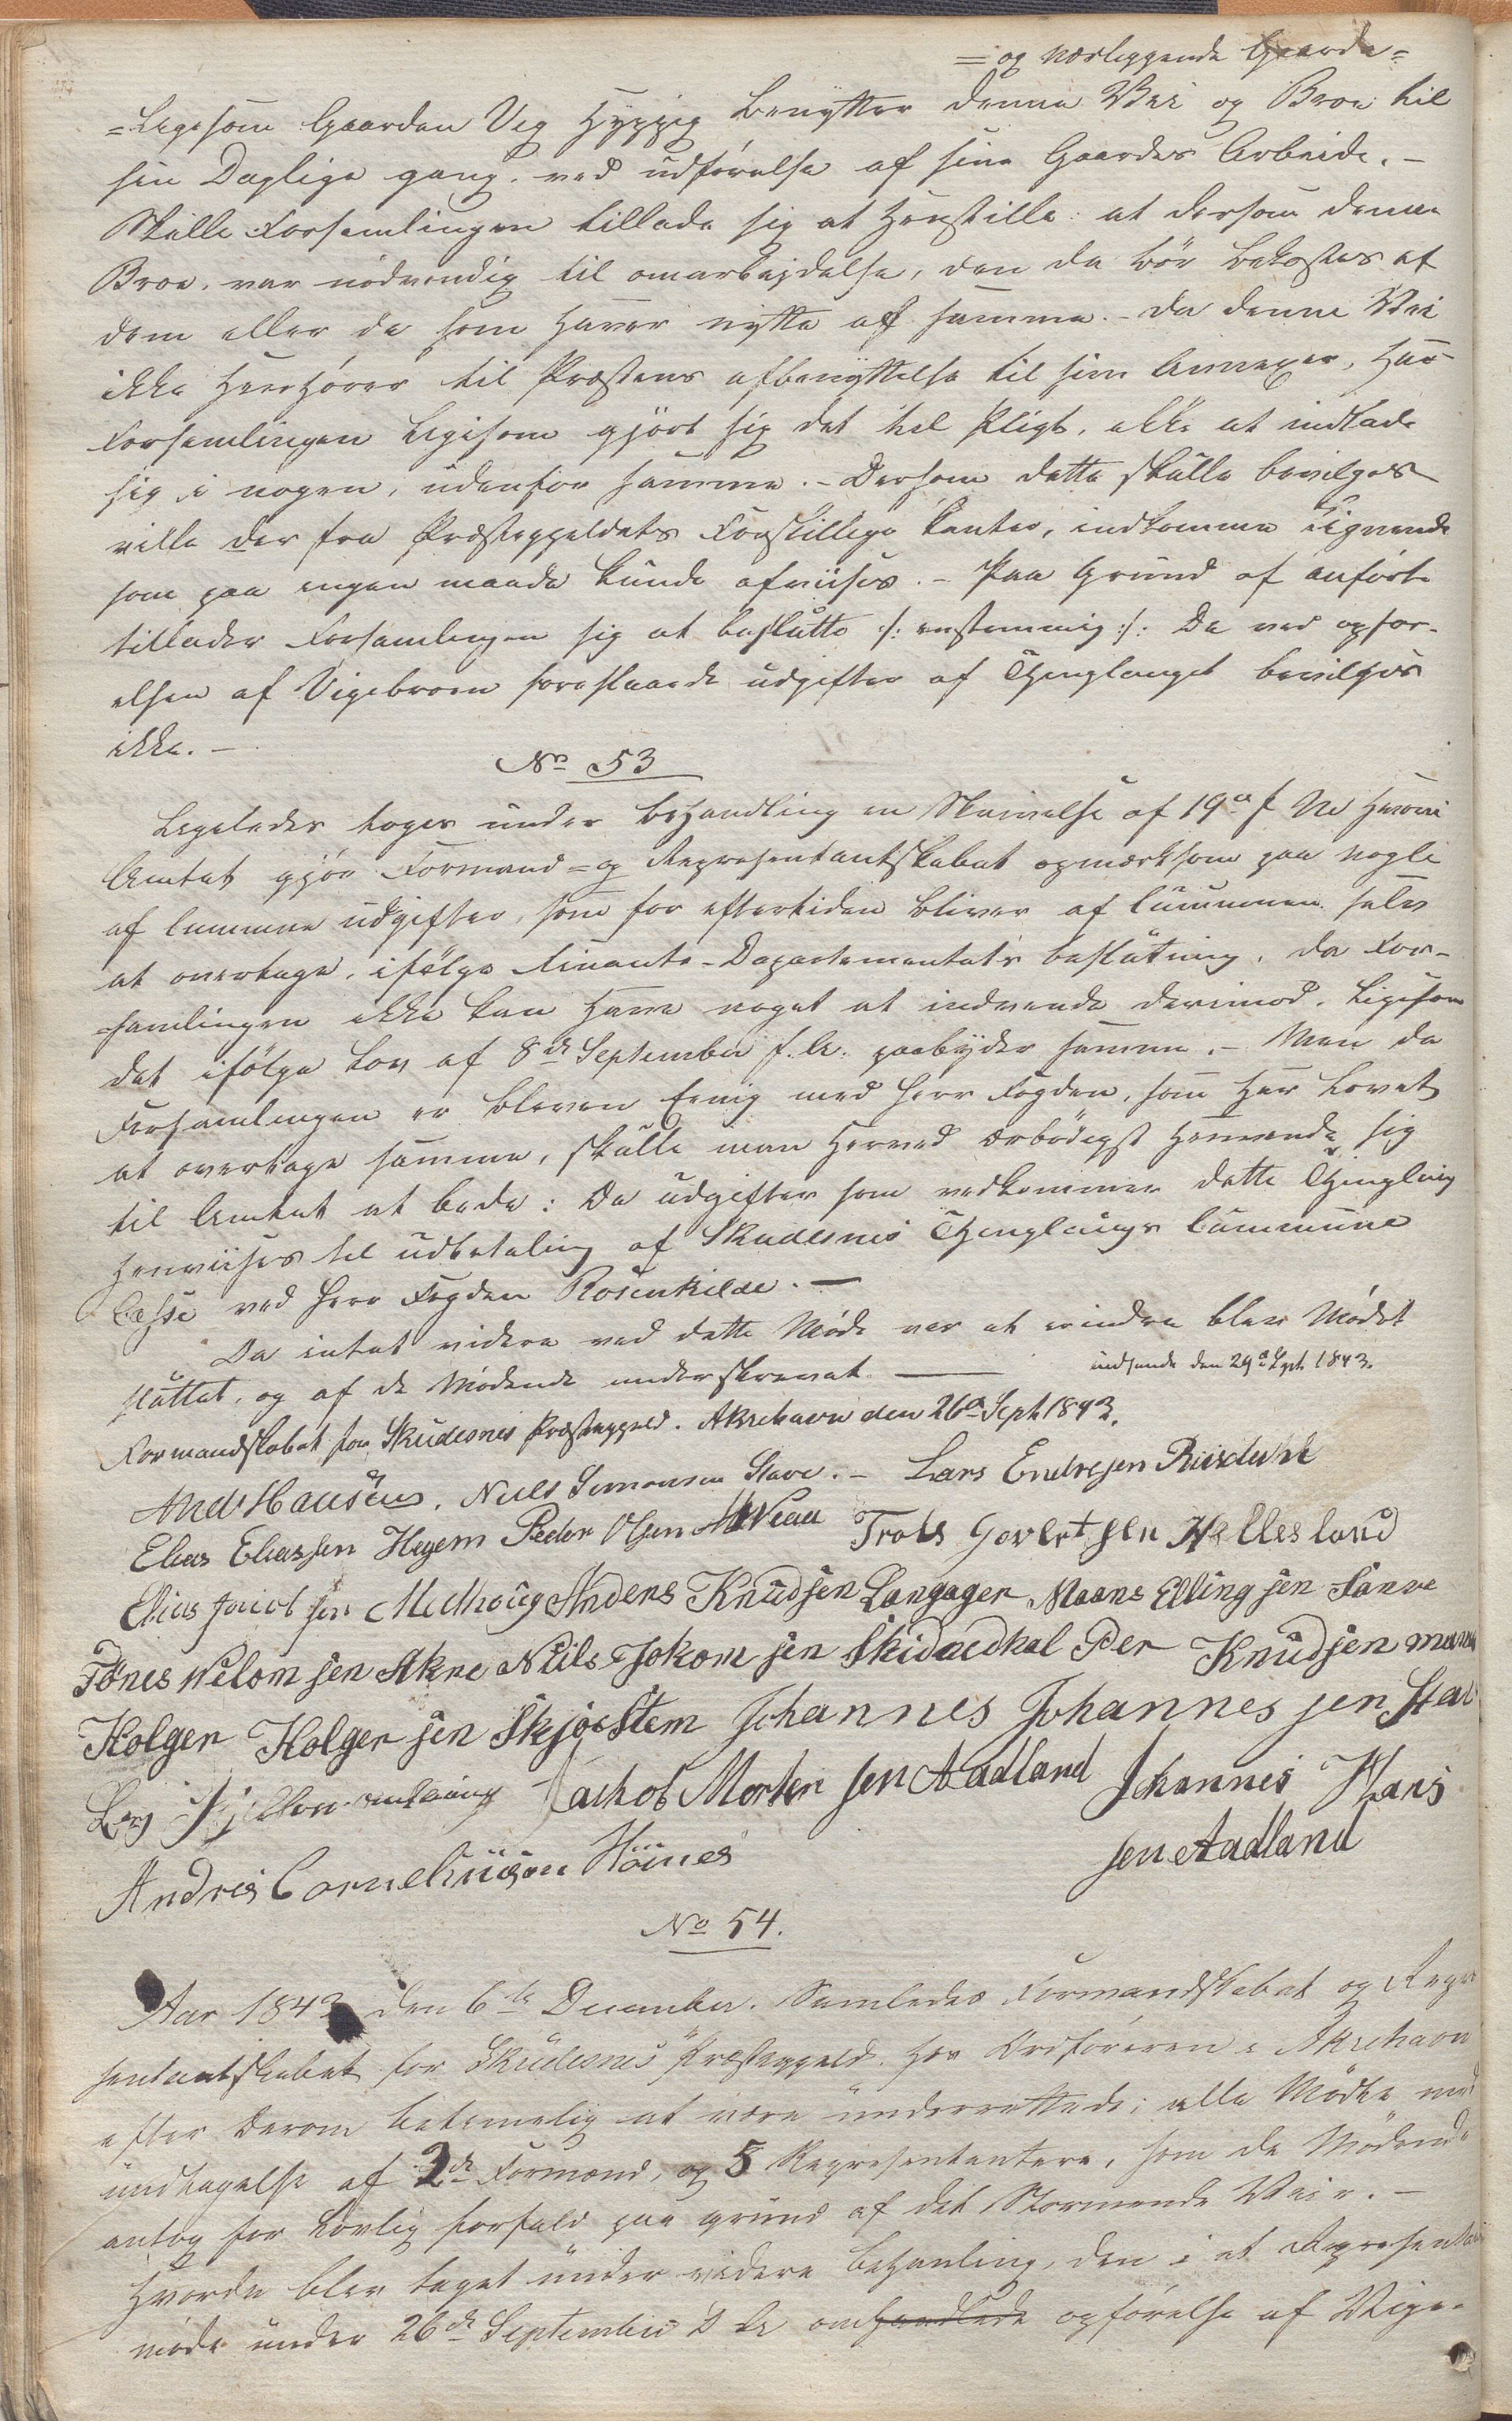 = og nærliggende Gaarde =
= Ligesom Gaarden Vig Hyppig benytter denne Vei og Broe til
sin Daglige gang. ved udførelse af sine Gaardes Arbeide. –
Skulle Forsamlingen tillade sig at Henstille: at dersom denne
Broe, var nødvendig til omarbejdelse, den da bør bekostes af
dem eller de som haver nytte af samme. – Da denne Vei
ikke henhører til Præstens afbenyttelse til sine Annexer, har
Forsamlingen ligesom gjört sig det til Pligt, ikke at indlade
sig i nogen, udenfor samme. – Dersom dette skulle bevilges
ville der fra Præstegjeldets Forskillige kanter, indkomme lignende
som paa ingen maade kunde afviises. – Paa Grund af anførte
tillader Forsamlingen sig at beslutte :/: enstemmig :/: De ved opfør-
elsen af Vigebroen forestaaede udgifter af Thinglauget bevilges
ikke. –
No 53
Ligeledes toges under behandling en Skrivelse af 19de f. M. hvori
Amtet gjör Formand = og Repræsentantskabet opmærksom paa nogle
af Commune udgifter, som for eftertiden bliver af Communen selv
at overtage, ifølge Finants-Departementets beslutning, da For-
samlingen ikke kan have noget at indvende derimod. Ligesom
det ifølge Lov af 8de September f. A. paabyder samme. – Men da
Forsamlingen er bleven Eenig med Herr Fogden, som har lovet
at overtage samme, skulle man herved ærbødigst henvende sig
til Amtet at bede: De udgifter som vedkommer dette Thinglaug
henviises til udbetaling af Skudesnes Thinglaugs Commune
Casse ved Herr Fogden Rosenkilde. –
Da intet videre ved dette Møde var at erindre blev Mødet
sluttet, og af de Mødende underskrevet. –
indsendt den 29de Sept. 1843.
Formandskabet for Skudesnes Præstegjeld. Akrehavn den 26de Sept 1843.
Niels Simonsen Stave. – Lars Endresen
Elias Eliassen Hegem Peder Olsen
Trols Govertsen Hellesland
Elias Jacobsen Medhoug Anders Knudsen Langager Maans Ellingsen Sanve
Tönes Nelomsen Akre Nils Jokomsen Skidaedkal Per Knudsen
Holger Holgersen Skjoestem Johannes Johannessen
Jachob Mortensen Aadland Johannes Hans
sen Aadland
Andris Corneliusen Höines
No 54.
Aar 1843 den 6te December. Samledes Formandskabet og Repræ
sentantskabet for Skudesnes Præstegjeld. hos Ordføreren i Akrehavn
efter derom betimelig at være underrettede; alle Mødte med
undtagelse af 2de Formænd, og 5 Repræsentantere, som de Mødende
antog for Lovlig forfald paa grund af det Stormende Veir. –
Hvorda blev taget under videre behandling, den i et Repræsentant
møde under 26de September d. A. omhandlede opførelse af Vige-